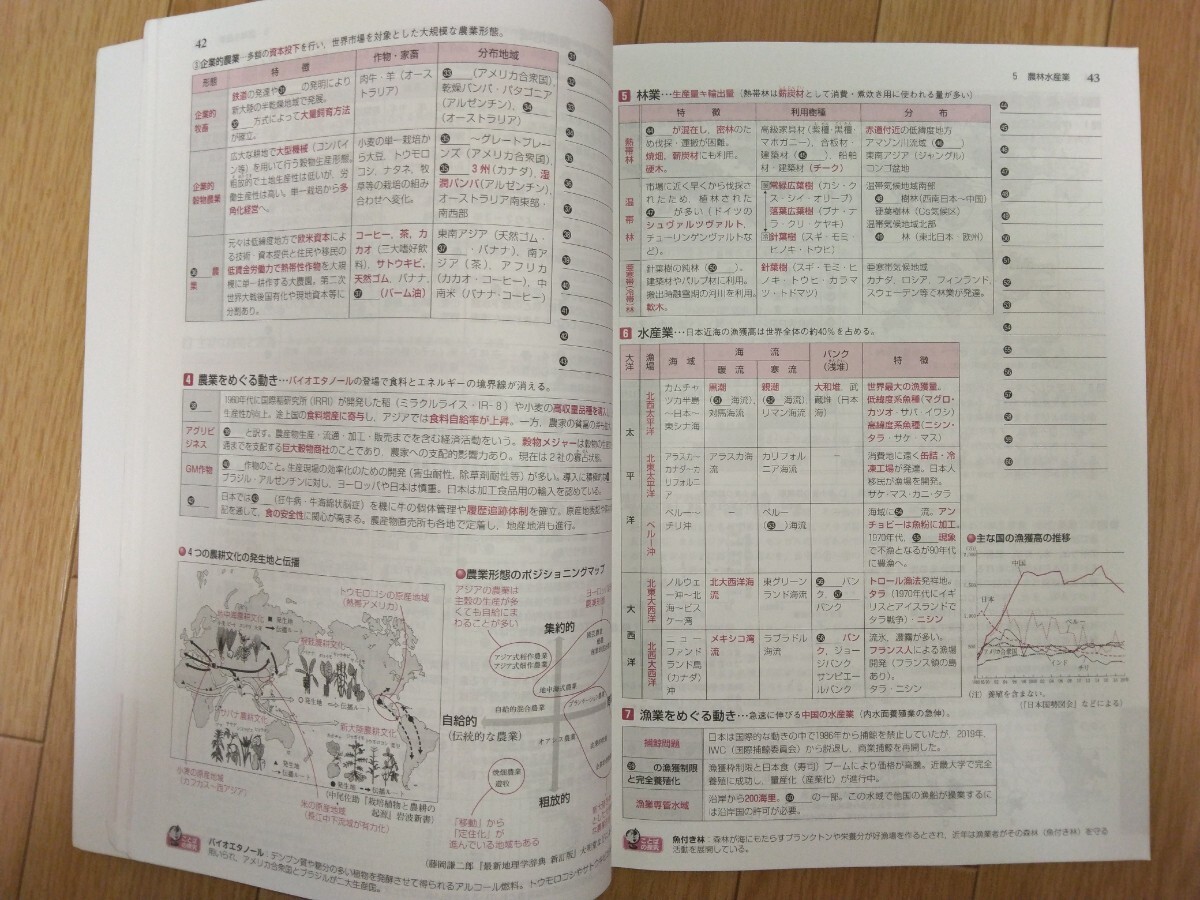 42
③企業的農業…多額の資本投下を行い、世界市場を対象とした大規模な農業形態。
形態 特徴 作物・家畜 分布地域
企業的牧畜
鉄道の発達や㉛ の発明により
新大陸の半乾燥地域で発展。
㉜ 方式によって大量飼育方法
が確立。
肉牛・羊(オース
トラリア)
㉝ (アメリカ合衆国)
乾燥パンパ・パタゴニア
(アルゼンチン)、㉞
(オーストラリア)
企業的穀物農業
広大な耕地で大型機械(コンバイ
ン等)を用いて行う穀物生産形態。
粗放的で土地生産性は低いが、労
働生産性は高い。単一栽培から多
角化経営へ。
小麦の単一栽培か
ら大豆、トウモロ
コシ、ナタネ、牧
草等の栽培の組み
合わせへ変化。
～グレートプレー
ンズ(アメリカ合衆国)
3州(カナダ)、湿
潤パンパ(アルゼンチン)、
オーストラリア南東部・
南西部
農業
元々は低緯度地方で欧米資本によ
る技術・資本提供と住民や移民の
低賃金労働力で熱帯性作物を大規
模に単一耕作する大農園。第二次
世界大戦後国有化や現地資本等に
分割あり。
コーヒー、茶、カ
カオ(三大嗜好飲
料)、サトウキビ、
天然ゴム、バナナ、
㊲ (パーム油)
東南アジア(天然ゴム・
㊲ ・バナナ)、南ア
ジア(茶)、アフリカ
(カカオ・コーヒー)、中
南米(バナナ・コーヒー)
4 農業をめぐる動き…バイオエタノールの登場で食料とエネルギーの境界線が消える。
1960年代に国際稲研究所(IRRI)が開発した稲(ミラクルライス・IR-8)や小麦の高収量品種を導入し
生産性が向上。途上国の食料増産に寄与し、アジアでは食料自給率が上昇。一方、農家の貧富の
アグリビジネス
㊴ と訳す。農産物生産・流通・加工・販売までを含む経済活動をいう。穀物メジャーは穀物の
通までを支配する巨大穀物商社のことであり、農家への支配的影響力あり。現在は2社の寡占状態。
GM作物
作物のこと。生産現場の効率化のための開発(害虫耐性、除草剤耐性等)が多い。導入に積極的な
ブラジル・アルゼンチンに対し、ヨーロッパや日本は慎重。日本は加工食品用の輸入を認めている。
日本では㊷ (狂牛病・牛海綿状脳症)を機に牛の個体管理や履歴追跡体制を確立。原産地表記や
配を通して、食の安全性に関心が高まる。農産物直売所も各地で定着し、地産地消も進行。
●4つの農耕文化の発生地と伝播
トウモロコシの原産地域
(熱帯アメリカ)
地中海農耕文化
■ 発生地
➡ 伝播ルート
根栽農耕文化
○発生地 ⇨伝播ルート
サバナ農耕文化
▲ 発生地
➡ 伝播ルート
新大陸農耕文化
●発生地 ➡伝播ルート
小麦の原産地域
(カフカス～西アジア)
米の原産地域
(長江中下流域が有力化)
(中尾佐助『栽培植物と農耕の
起源』岩波新書)
●農業形態のポジショニングマップ
アジアの農業は
主穀の生産が多
くても自給にま
わることが多い
集約的
アジア式稲作農業
アジア式畑作農業
地中海式農業
自給的混合農業
プランテーション農業
自給的
(伝統的な農業)
オアシス農業
焼畑農業
遊牧
粗放的
「移動」から
「定住化」が
進んでいる地域もある
(藤岡謙二郎『最新地理学辞典 新訂版』大明堂
バイオエタノール:デンプン質や糖分の多い植物を発酵させて得られるアルコール燃料。トウモロコシや
用いられ、アメリカ合衆国とブラジルが二大生産国。
5 農林水産業 43
5 林業…生産量≠輸出量(熱帯林は薪炭材として消費・煮炊き用に使われる量が多い)
特徴 利用樹種 分布
熱帯林
㊹ が混在し、密林のた
め伐採・運搬が困難。
焼畑、薪炭材にも利用。
硬木。
高級家具材(紫檀・黒檀・
マホガニー)、合板材・
建築材(㊺ )、船舶
材・建築材(チーク)
赤道付近の低緯度地方
アマゾン川流域(㊻ )
東南アジア(ジャングル)
コンゴ盆地
温帯林
市場に近く早くから伐採さ
れたため、植林された
㊼ が多い(ドイツの
シュヴァルツヴァルト、
チューリンゲンヴァルトな
ど)。
常緑広葉樹(カシ・ク
ス・シイ・オリーブ)
落葉広葉樹(ブナ・ナ
ラ・クリ・ケヤキ)
針葉樹(スギ・モミ・
ヒノキ・トウヒ)
温帯気候地域南部
㊽ 樹林(西南日本～中国)
硬葉樹林(Cs気候区)
温帯気候地域北部
㊾ 林(東北日本・欧州)
亜寒帯(冷帯)林
針葉樹の純林(㊿ )。
建築材やパルプ材に利用。
搬出時融雪期の河川を利用。
軟木。
針葉樹(スギ・モミ・ヒ
ノキ・トウヒ・カラマ
ツ・トドマツ)
亜寒帯気候地域
カナダ、ロシア、フィンランド、
スウェーデン等で林業が発達。
6 水産業…日本近海の漁獲高は世界全体の約40%を占める。
大洋 漁場 海域 海流 暖流 寒流 バンク(浅堆) 特徴
太平洋
北西太平洋
カムチャ
ツカ半島
～日本～
東シナ海
黒潮
(51 海流)、
対馬海流
親潮
(52 海流)
リマン海流
大和堆、武
蔵堆(日本
海)
世界最大の漁獲量。
低緯度系魚種(マグロ・
カツオ・サバ・イワシ)
高緯度系魚種(ニシン・
タラ・サケ・マス)
北東太平洋
アラスカ～
カナダ～カ
リフォルニ
ア
アラスカ海
流
カリフォル
ニア海流
－
消費地に遠く缶詰・冷
凍工場が発達。日本人
移民が漁場を開発。
サケ・マス・カニ・タラ
ペルー沖
ペルー～
チリ沖
－
ペルー
(53 )海流
－
海域に54 流。アン
チョビーは魚粉に加工。
1970年代、55 現象
で不漁となるが90年代
に豊漁へ。
大西洋
北東大西洋
ノルウェ
ー沖～北
海～ビス
ケー湾
北大西洋海
流
東グリーン
ランド海流
56 バン
ク、57
バンク
トロール漁法発祥地。
タラ(1970年代にイギ
リスとアイスランドで
タラ戦争)・ニシン
北西大西洋
ニューファ
ンドランド
島(カナダ)
沖
メキシコ湾
流
ラブラドル
海流
バン
ク、ジョー
ジバンク
サンピエー
ルバンク
流氷、濃霧が多い。
フランス人による漁場
開発(フランス領の島
あり)。
タラ・ニシン
●主な国の漁獲高の推移
中国
日本
ペルー
アメリカ合衆国
インド
チリ
(注) 養殖を含まない。
(『日本国勢図会』などによる)
7 漁業をめぐる動き…急速に伸びる中国の水産業(内水面養殖業の急伸)。
捕鯨問題
日本は国際的な動きの中で1986年から捕鯨を禁止していたが、2019年、
IWC(国際捕鯨委員会)から脱退し、商業捕鯨を再開した。
の漁獲制限
と完全養殖化
漁獲枠制限と日本食(寿司)ブームにより価格が高騰。近畿大学で完全
養殖に成功し、量産化(産業化)が進行中。
漁業専管水域
沿岸から200海里。60 の一部。この水域で他国の漁船が操業するに
は沿岸国の許可が必要。
魚付き林:森林が海にもたらすプランクトンや栄養分が好漁場を作るとされ、近年は漁業者がその森林(魚付き林)を守る
活動を展開している。